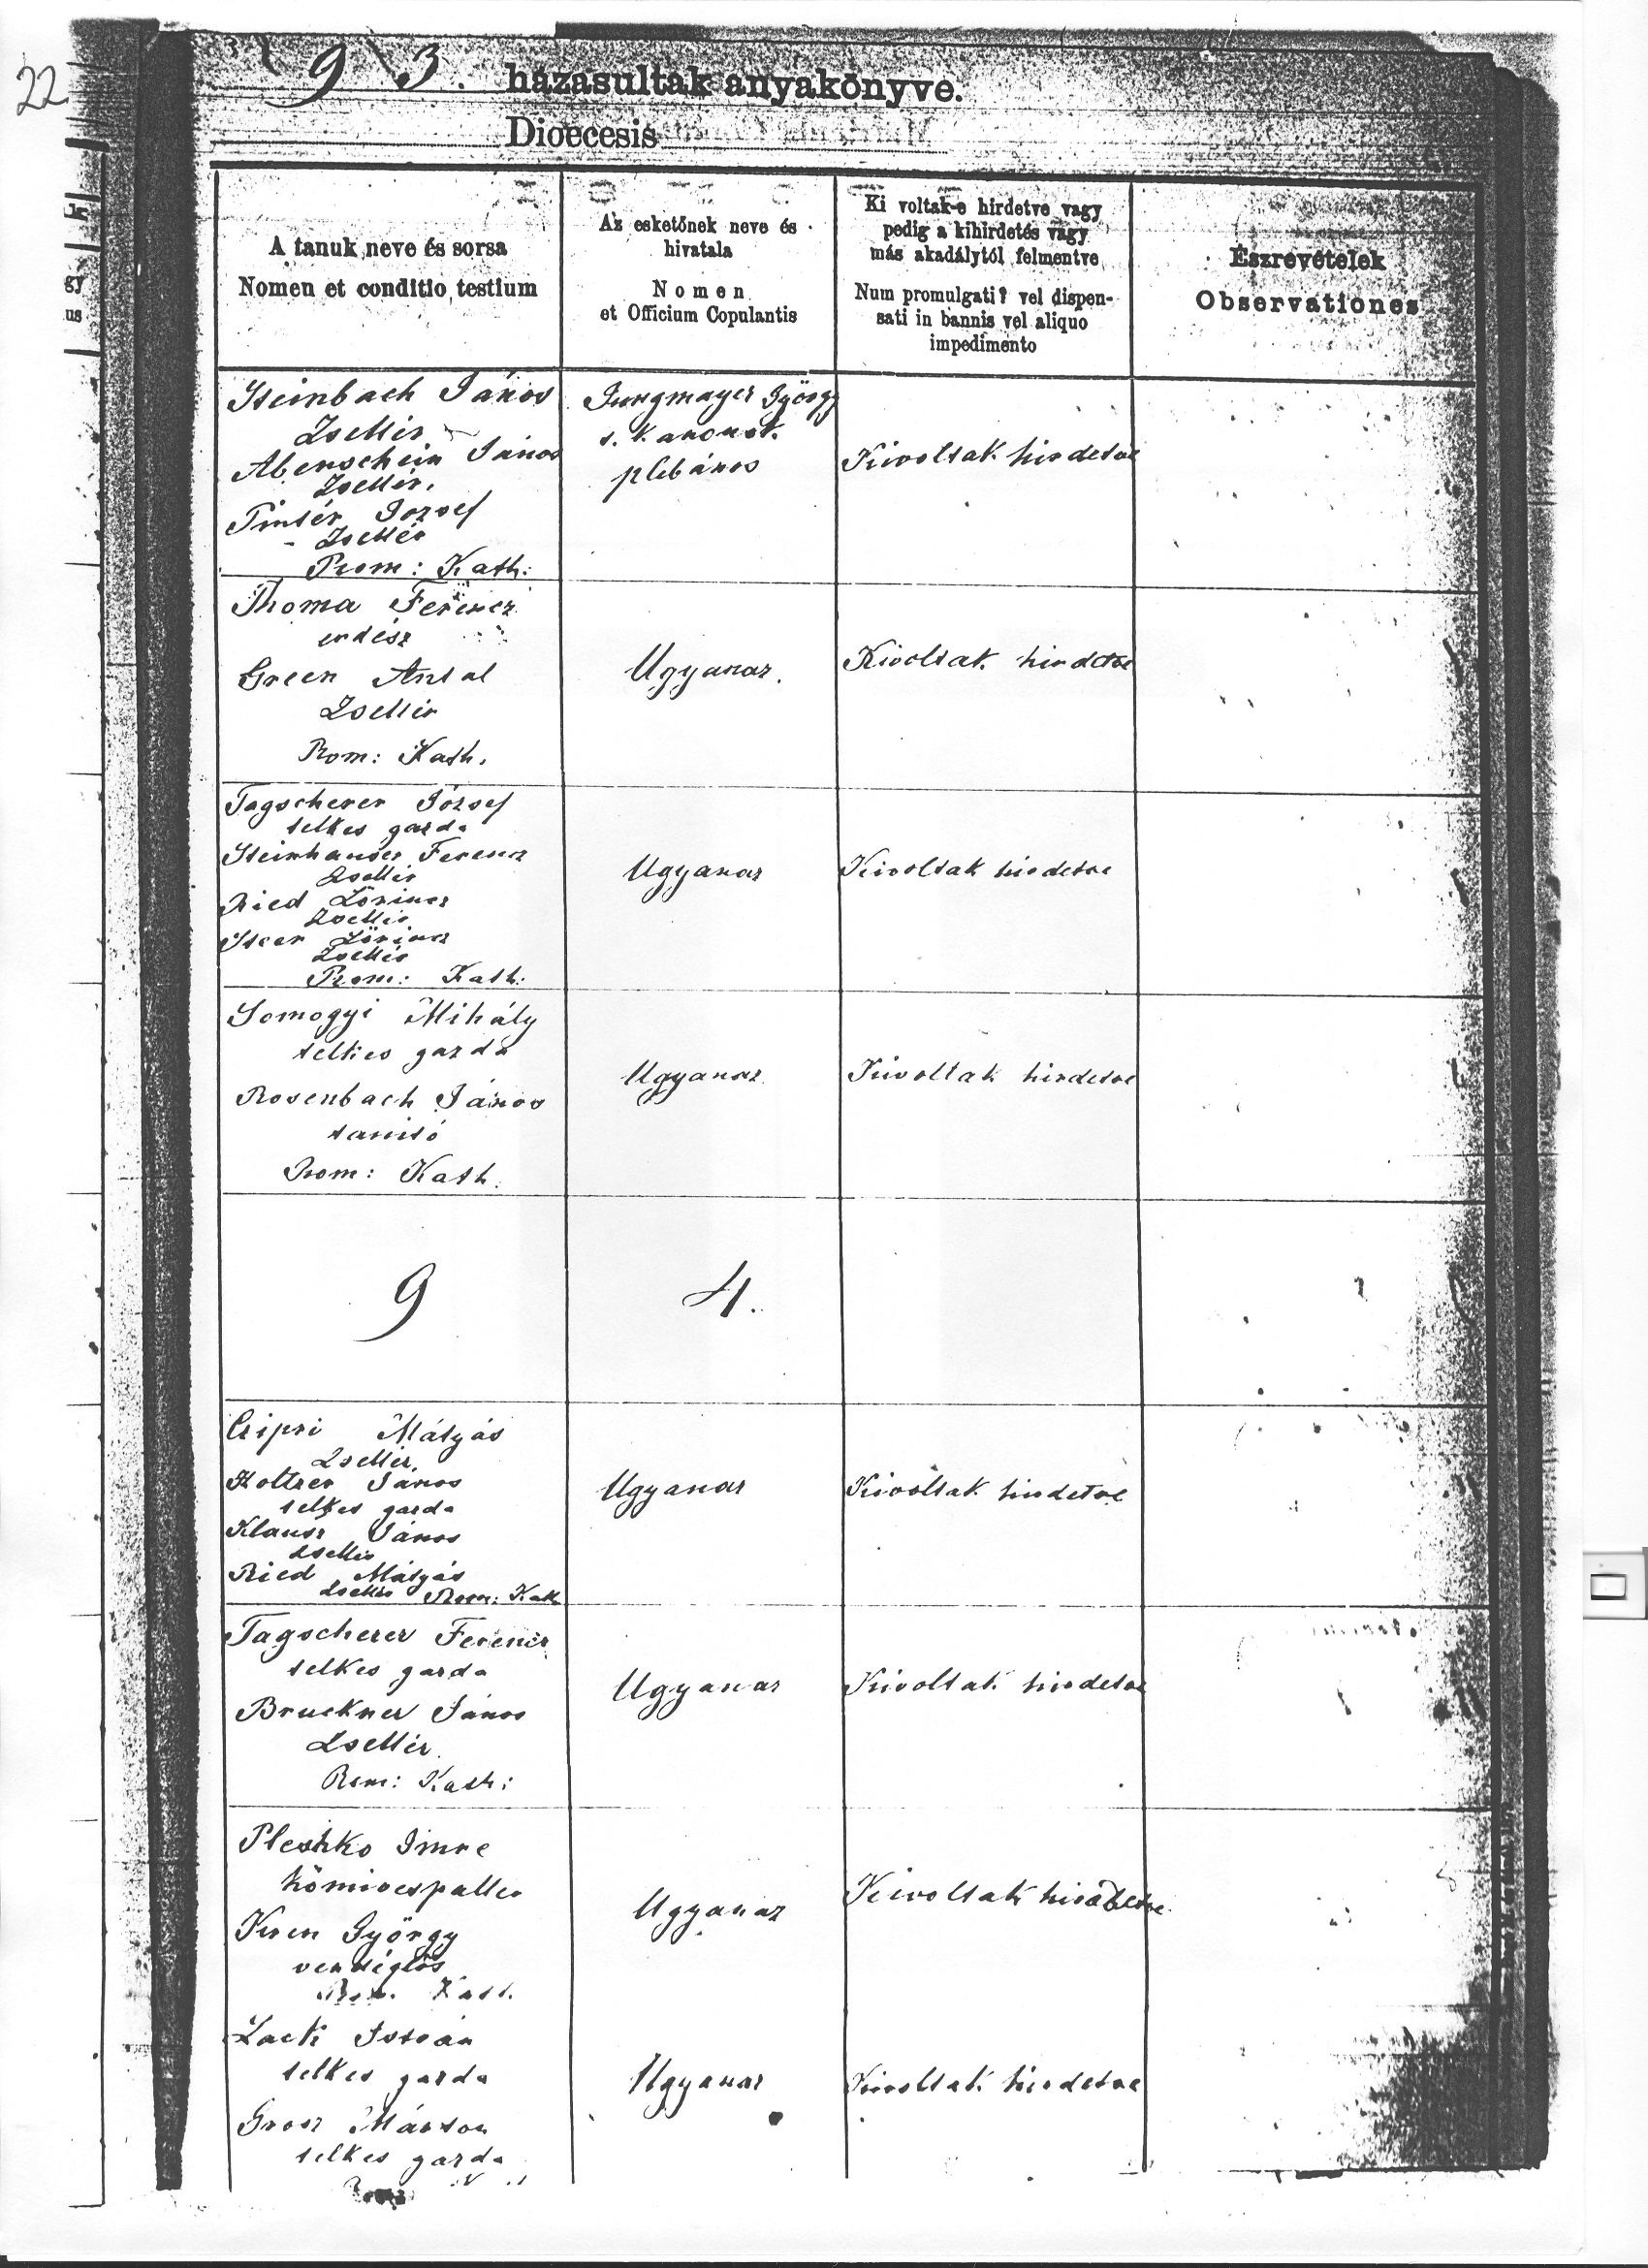 22
93. házasultak anyakönyve.
Dioecesis
gy
us
A tanuk neve és sorsa
Nomen et conditio testium
Az esketőnek neve és
hivatala
Nomen
et Officium Copulantis
Ki voltak-e hirdetve vagy
pedig a kihirdetés vagy
más akadálytól felmentve
Num promulgati? vel dispen-
sati in bannis vel aliquo
impedimento
Észrevételek
Observationes
Steinbach János
Zsellér
Abenschein János
Zsellér.
Pintér József
Zsellér
Rom: Kath:
Jungmayer György
plébános
Kivoltak hirdetve
Thoma Ferencz
erdész
Green Antal
Zsellér
Rom: Kath.
Ugyanaz.
Kivoltak hirdetve
Tagscherer József
telkes gazda
Steinhauser Ferencz
Zsellér
Ried Lőrincz
Zsellér
Steer Lőrincz
Zsellér
Rom: Kath:
Ugyanaz
Kivoltak hirdetve
Somogyi Mihály
telkes gazda
Rosenbach János
tanító
Rom: Kath.
Ugyanaz
Kivoltak hirdetve
9 4.
Csipri Mátyás
Zsellér.
Holtzer János
telkes gazda
Klausz János
Zsellér
Ried Mátyás
Zsellér Rom: Kath
Ugyanaz
Kivoltak hirdetve
Tagscherer Ferencz
telkes gazda
Bruckner János
Zsellér.
Rom: Kath:
Ugyanaz
Kivoltak hirdetve
Pleshko Imre
Kőmivespallér
György
vendéglős
Rom. Kath.
Ugyanaz
Kivoltak hirdetve
Lack István
telkes gazda
Grosz Márton
telkes gazda
Rom
Ugyanaz
Kivoltak hirdetve